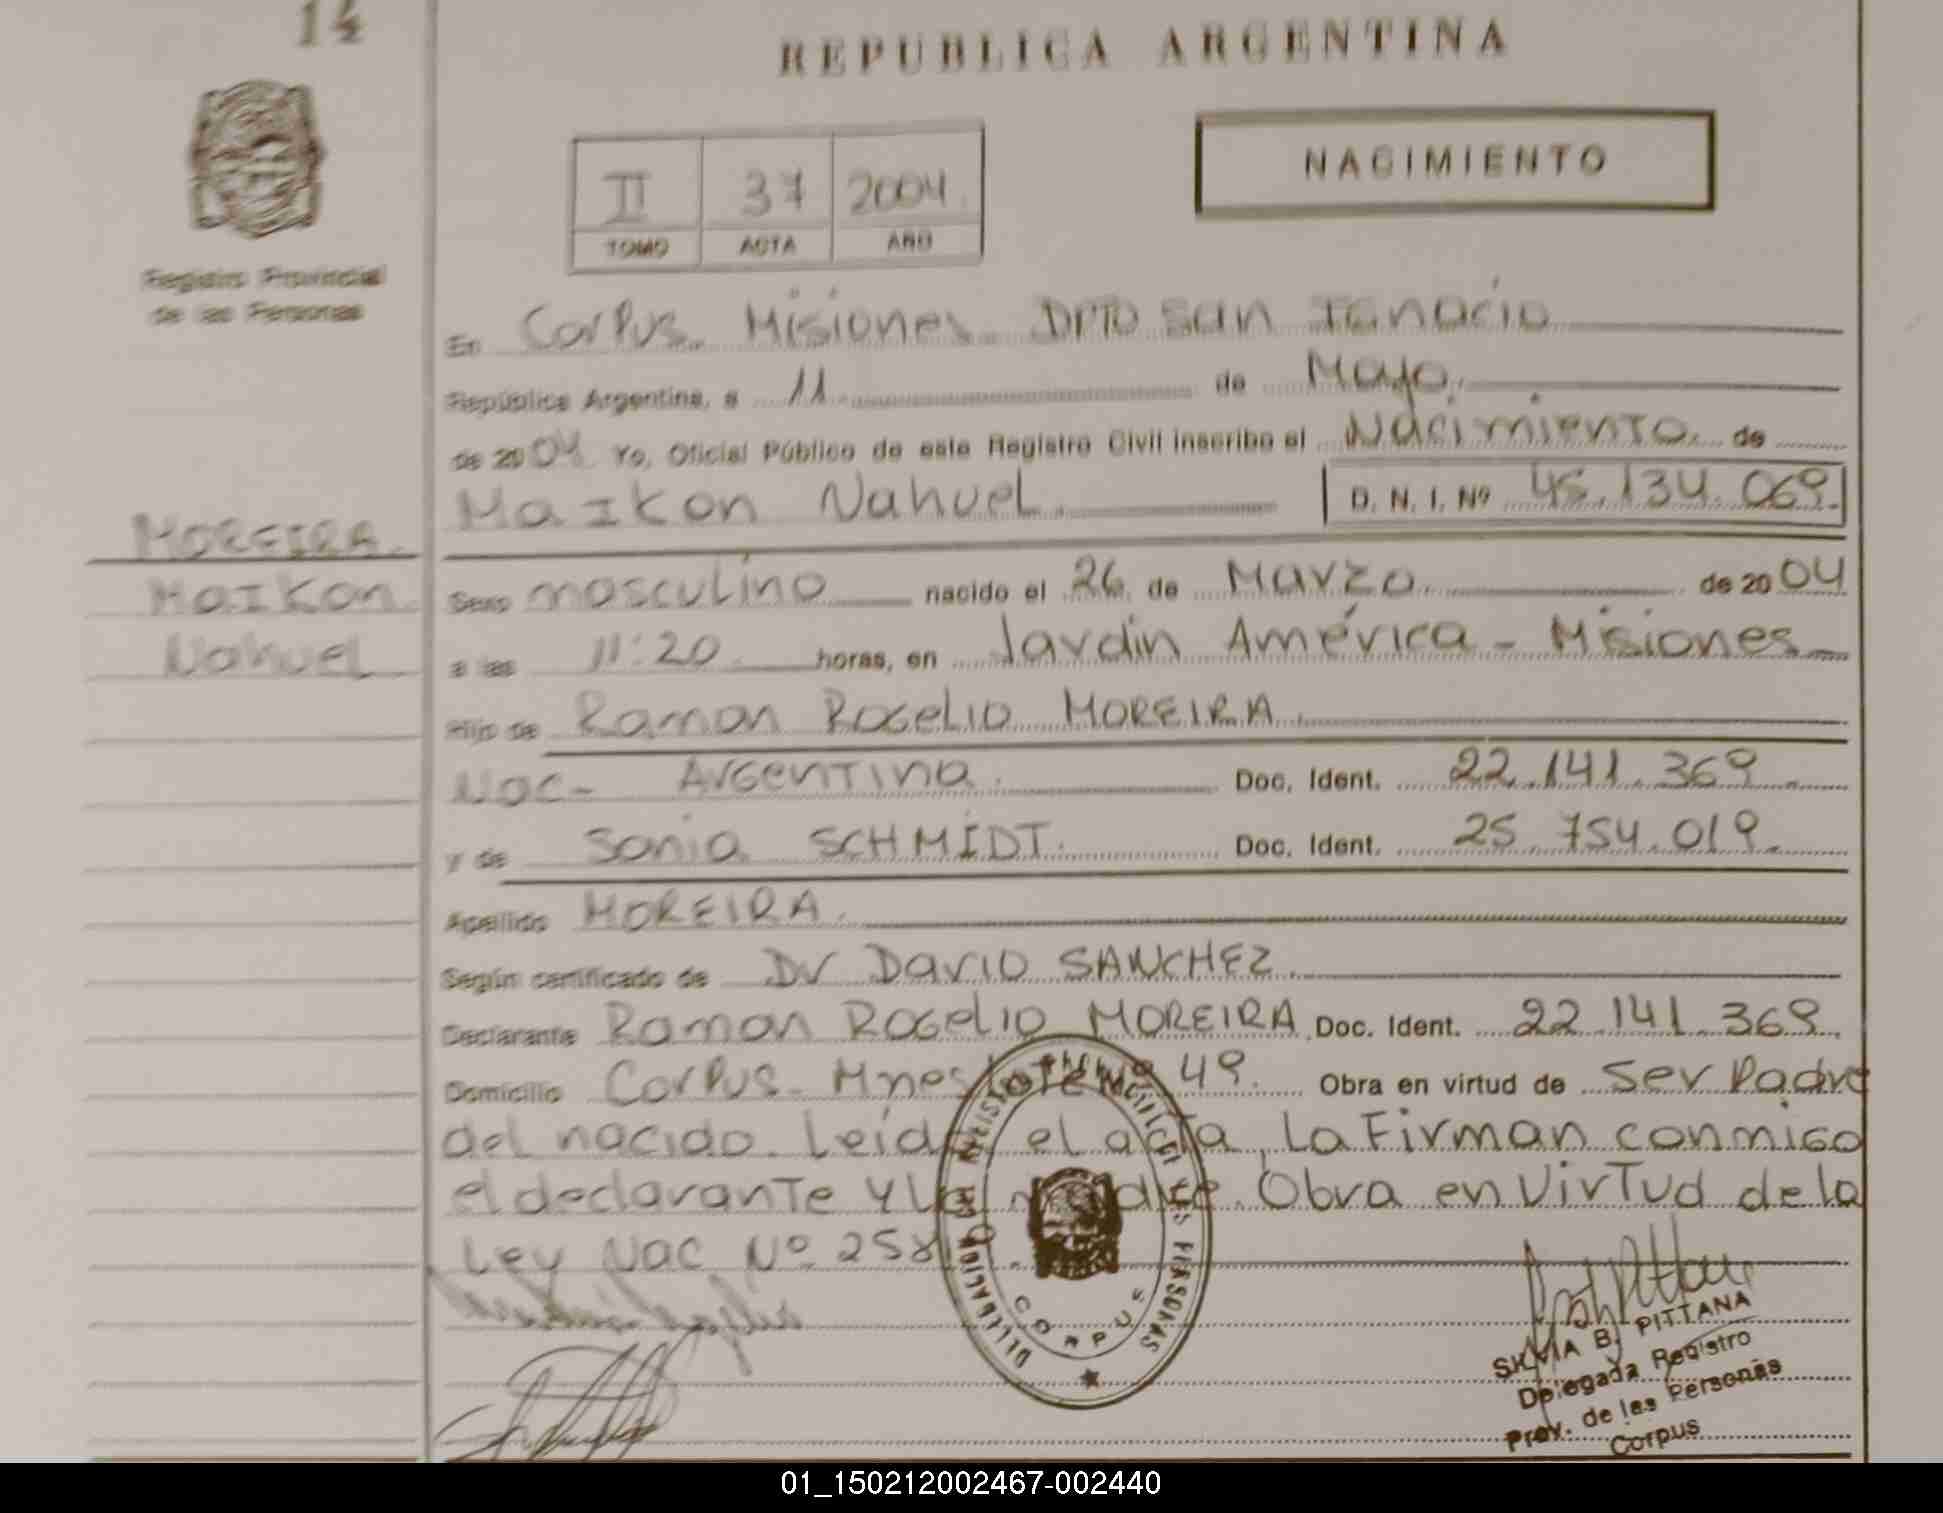 14
REPUBLICA ARGENTINA
NACIMIENTO
II 37 2004
TOMO ACTA AÑO
Registro Provincial
de las Personas
En Corpus. Misiones DPTO San Ignacio
República Argentina, a 11 de Mayo.
de 2004 Yo, Oficial Público de este Registro Civil inscribo el Nacimiento. de
MaIkon Nahuel. D. N. I. Nº 45.134.069.
MOREIRA.
MaIkon
Nahuel
Sexo masculino nacido el 26 de Marzo de 2004
a las 11:20 horas, en Jardin América - Misiones
Hijo de Ramon Rogelio MOREIRA.
Nac- Argentina. Doc. Ident. 22.141.369.
y de Sonia SCHMIDT. Doc. Ident. 25.754.019.
Apellido MOREIRA.
Según certificado de Dr Dario SANCHEZ.
Declarante Ramon Rogelio MOREIRA. Doc. Ident. 22.141.369.
Domicilio Corpus. Mnes Lote Nº 49. Obra en virtud de Ser Padre
del nacido. Leída el acta, La Firman conmigo
el declarante y la madre. Obra en Virtud de la
Ley Nac Nº
DELEGACION DEL REGISTRO PROVINCIAL DE LAS PERSONAS
CORPUS
SILVIA B. PITTANA
Delegada Registro
Prov. de las Personas
Corpus
01_150212002467-002440